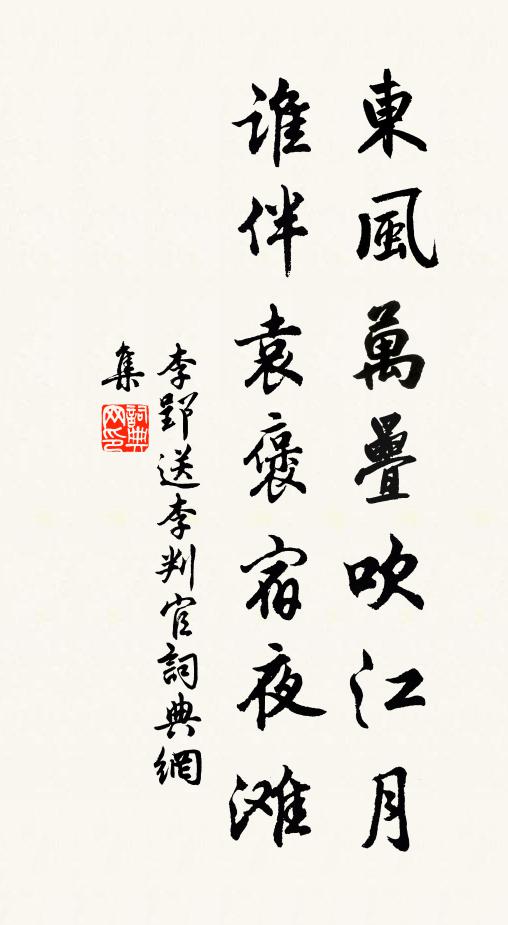 東風萬疊吹江月
誰伴袁褒宿夜滩
李郢送李判官詞典網
集
詞典
网印